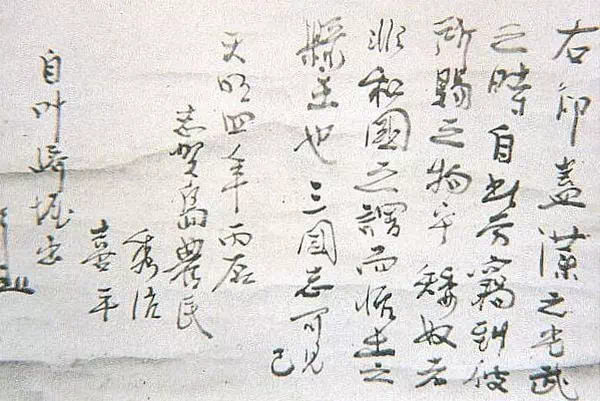 右印蓋漢之光武
之時自此方竊到彼
所賜之物乎矮奴者
非和國之謂而怡土之
縣主也三國志可見
己
天明四年丙辰
志賀島農民
秀治
喜平
自叶崎堀出